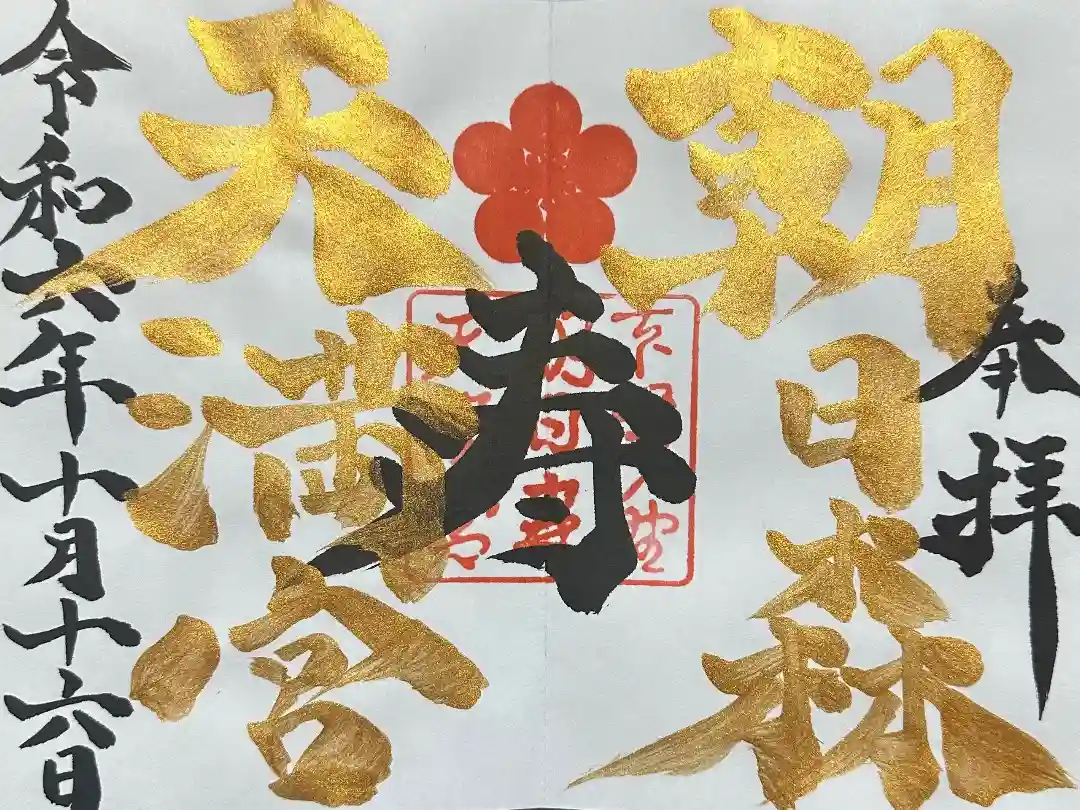 奉拝
朝日森
寿
天満宮
令和六年十月十六日